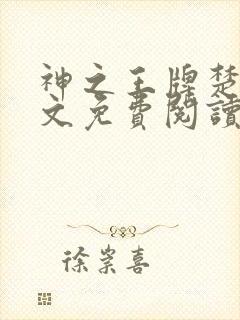 神之王牌楚
文免費閱讀
徐崇喜